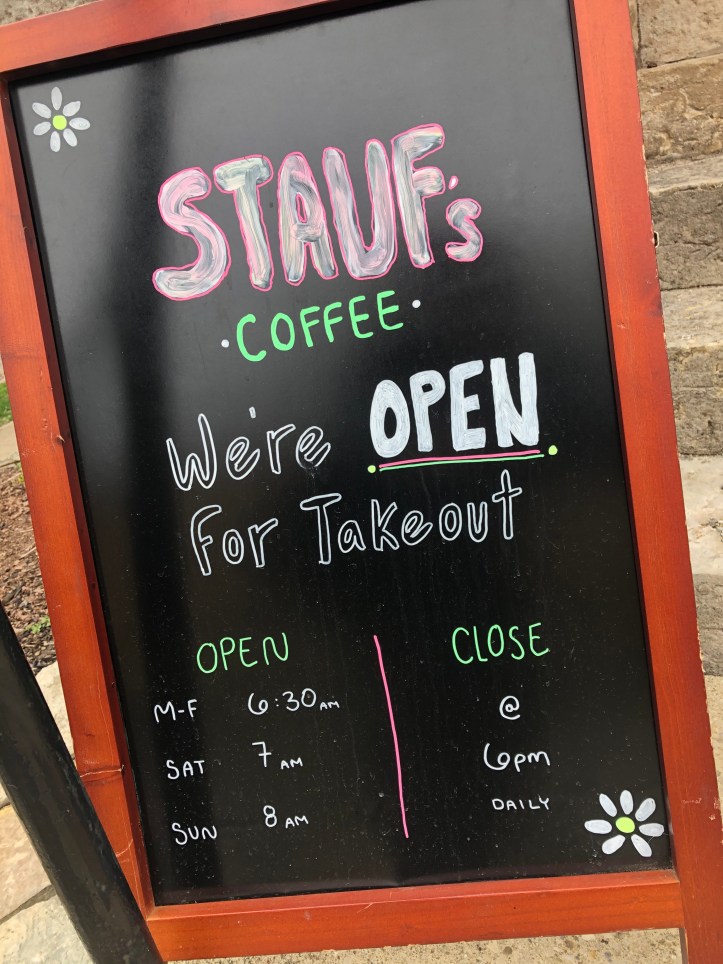 STAUF's
·COFFEE·
We're OPEN
for Takeout
OPEN
M-F 6:30 AM
SAT 7 AM
SUN 8 AM
CLOSE
@
6pm
DAILY